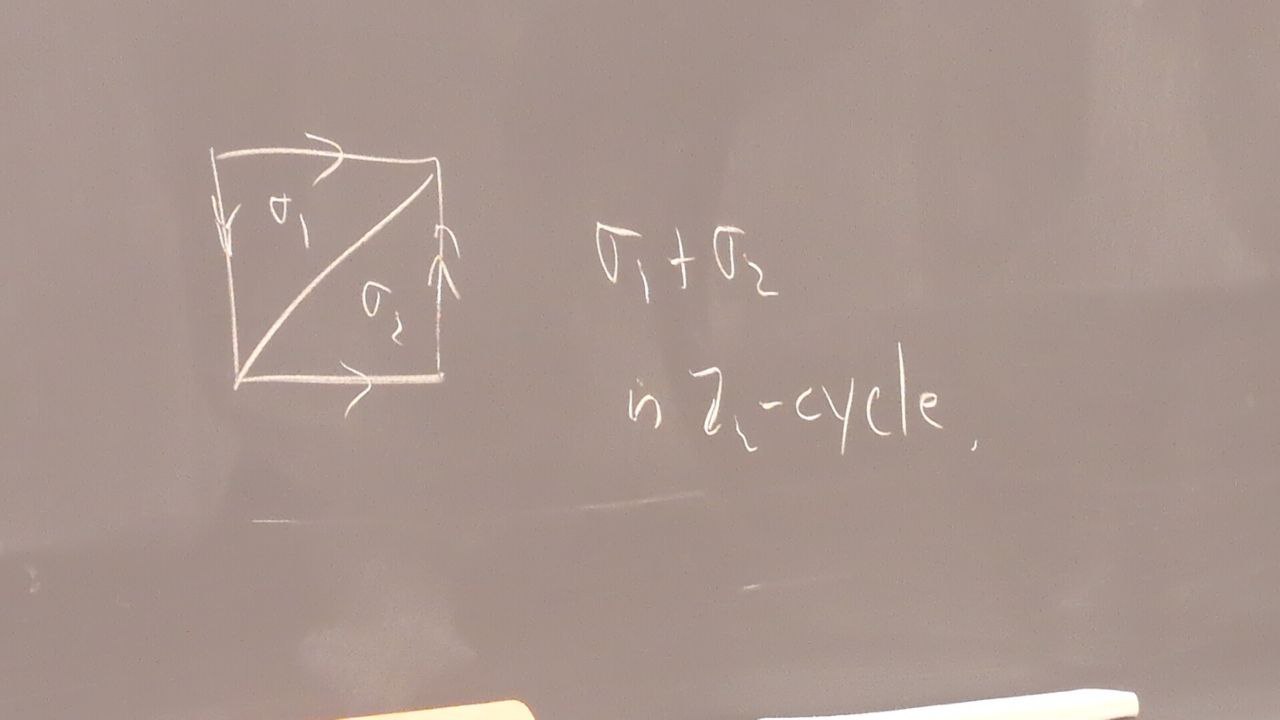 σ₁
σ₂
σ₁ + σ₂
is ℤ₂-cycle.